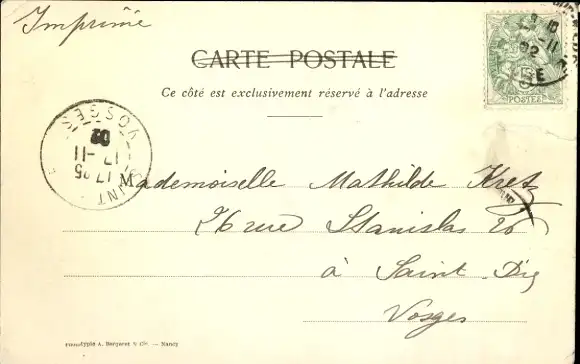 Imprimé
CARTE POSTALE
Ce côté est exclusivement réservé à l'adresse
5
POSTES
VOSGES
02
17-11
17 25
SAINT
Mademoiselle Mathilde Kretz
26 rue Stanislas 26
à Saint Dié
Vosges
Phototypie A. Bergeret & Cie. — Nancy